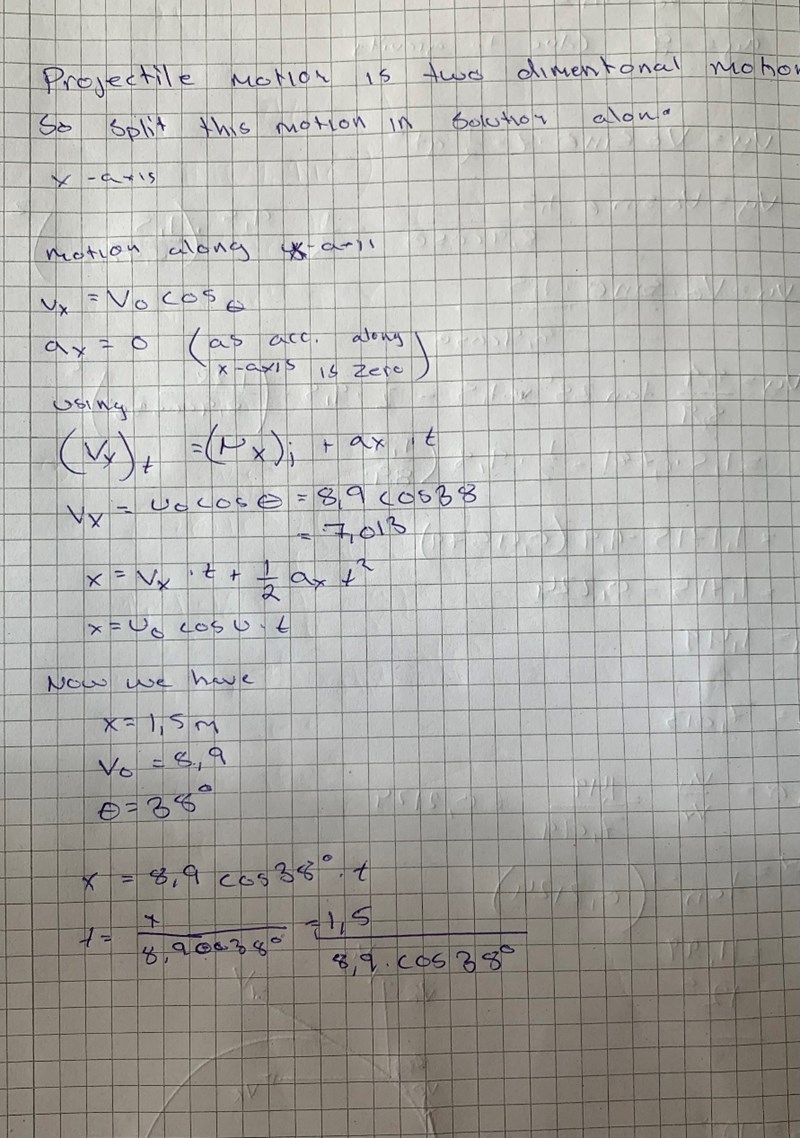 Projectile motion is two dimentonal motion
So split this motion in solution along
x-axis
motion along x-axis
Vx = V0 cos θ
ax = 0 (as acc. along
x-axis is zero)
using
(Vx)t = (Vx)i + ax . t
Vx = v0 cos θ = 8,9 cos38
= 7,013
x = Vx · t + 1/2 ax t²
x = v0 cos υ · t
Now we have
x = 1,5 m
V0 = 8,9
θ = 38°
x = 8,9 cos38° · t
t = x / 8,9 cos38° = 1,5 / 8,9 . cos 38°